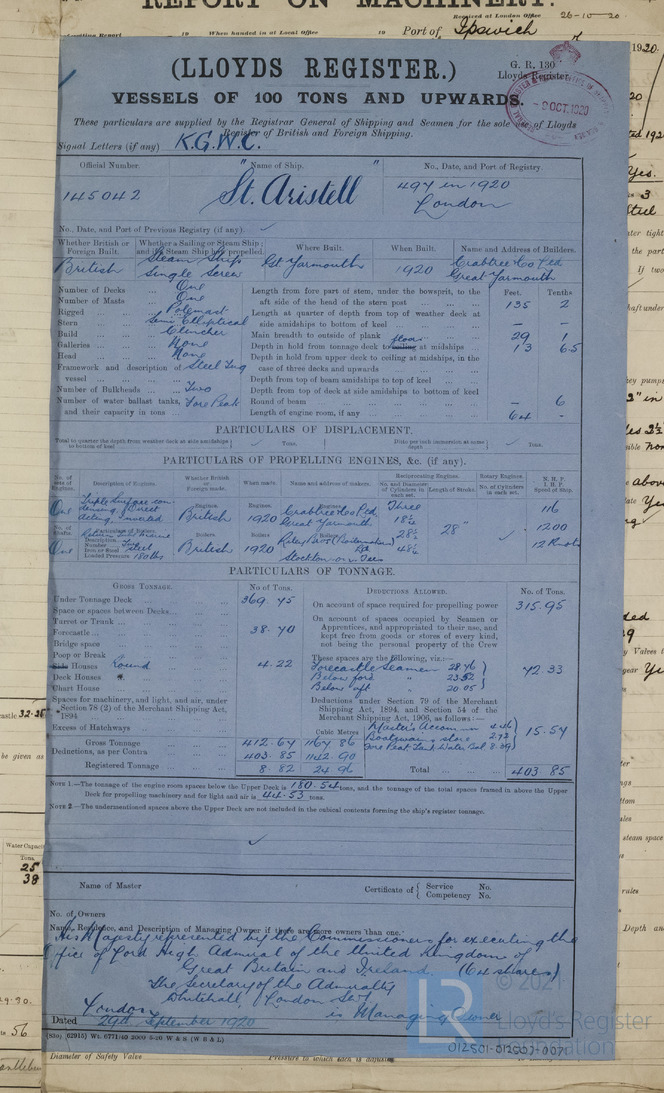 REPORT ON MACHINERY.
Received at London Office 26-10-20
19 When handed in at Local Office 19 Port of Ipswich
1920.
(LLOYDS REGISTER.)
G. R. 130
Lloyds Register
VESSELS OF 100 TONS AND UPWARDS.
- 9 OCT. 1920
These particulars are supplied by the Registrar General of Shipping and Seamen for the sole use of Lloyds
Register of British and Foreign Shipping.
Signal Letters (if any) K.G.W.C.
Official Number. Name of Ship. No., Date, and Port of Registry.
145042 "St. Aristell" 497 in 1920
London
No., Date, and Port of Previous Registry (if any).
Whether British or Foreign Built. Whether a Sailing or Steam Ship; and if Steam Ship how propelled. Where Built. When Built. Name and Address of Builders.
British Steam Ship Single Screw Gt Yarmouth 1920 Crabtree & Co Ltd Great Yarmouth
Feet. Tenths
Number of Decks One
Number of Masts One
Rigged Polemast
Stern Semi Elliptical
Build Clencher
Galleries None
Head None
Framework and description of vessel Steel Tug
Number of Bulkheads Two
Number of water ballast tanks, and their capacity in tons Fore Peak
Length from fore part of stem, under the bowsprit, to the aft side of the head of the stern post 135 2
Length at quarter of depth from top of weather deck at side amidships to bottom of keel - -
Main breadth to outside of plank 29 1
Depth in hold from tonnage deck to ceiling floors at midships 13 6.5
Depth in hold from upper deck to ceiling at midships, in the case of three decks and upwards
Depth from top of beam amidships to top of keel
Depth from top of deck at side amidships to bottom of keel
Round of beam - 6
Length of engine room, if any 64 -
PARTICULARS OF DISPLACEMENT.
Total to quarter the depth from weather deck at side amidships to bottom of keel Tons. Ditto per inch immersion at same depth Tons.
PARTICULARS OF PROPELLING ENGINES, &c. (if any).
No. of sets of Engines. Description of Engines. Whether British or Foreign made. When made. Name and address of makers. Reciprocating Engines. No. and Diameter of Cylinders in each set. Length of Stroke. Rotary Engines. No. of Cylinders in each set. N.H.P. I.H.P. Speed of Ship.
One Triple Surface con densing Direct Acting Inverted Engines. British Engines. 1920 Engines. Crabtree & Co Ltd Great Yarmouth Three 18½ 28½ 48½ 28" 116 1200 12 Knots
No. of Shafts. One Particulars of Boilers. Description Number Two Iron or Steel Steel Loaded Pressure 180 lbs Boilers. British Boilers 1920 Boilers. Riley Bros (Boilermakers) Ltd Stockton on Tees
PARTICULARS OF TONNAGE.
GROSS TONNAGE. No of Tons. DEDUCTIONS ALLOWED. No. of Tons.
Under Tonnage Deck 369.45
Space or spaces between Decks
Turret or Trunk
Forecastle 38.40
Bridge space
Poop or Break
Side Houses Round 4.22
Deck Houses
Chart House
Spaces for machinery, and light, and air, under Section 78 (2) of the Merchant Shipping Act, 1894
Excess of Hatchways
Cubic Metres
Gross Tonnage 412.67 1167.86
Deductions, as per Contra 403.85 1142.90
Registered Tonnage 8.82 24.96
On account of space required for propelling power 315.95
On account of spaces occupied by Seamen or Apprentices, and appropriated to their use, and kept free from goods or stores of every kind, not being the personal property of the Crew
These spaces are the following, viz.:—
Forecastle Seamen 28.76
Below ford " 23.52
Below aft " 20.05
72.33
Deductions under Section 79 of the Merchant Shipping Act, 1894, and Section 54 of the Merchant Shipping Act, 1906, as follows:—
Master's Accom
Boatswains store 2.92
Fore Peak Tank Water Bal
15.57
Total 403.85
NOTE 1.—The tonnage of the engine room spaces below the Upper Deck is 180.54 tons, and the tonnage of the total spaces framed in above the Upper
Deck for propelling machinery and for light and air is 44.53 tons.
NOTE 2.—The undermentioned spaces above the Upper Deck are not included in the cubical contents forming the ship's register tonnage.
Name of Master Certificate of { Service No. Competency No.
No. of Owners
Name, Residence, and Description of Managing Owner if there are more owners than one.
His Majesty represented by the Commissioners for executing the
Office of Lord High Admiral of the United Kingdom of
Great Britain and Ireland, (64 shares)
The Secretary of the Admiralty
Whitehall, London SW1
is Managing Owner
London
Dated 29th September 1920
(51o) (62915) Wt. 6771/49 2000 5-20 W & S (W B & L)
© 2021
LR
Lloyd's Register
Foundation
012501-012507-0071
Diameter of Safety Valve
Pressure to which each is adjusted
Water Capacity
Tons.
25
38
be given as